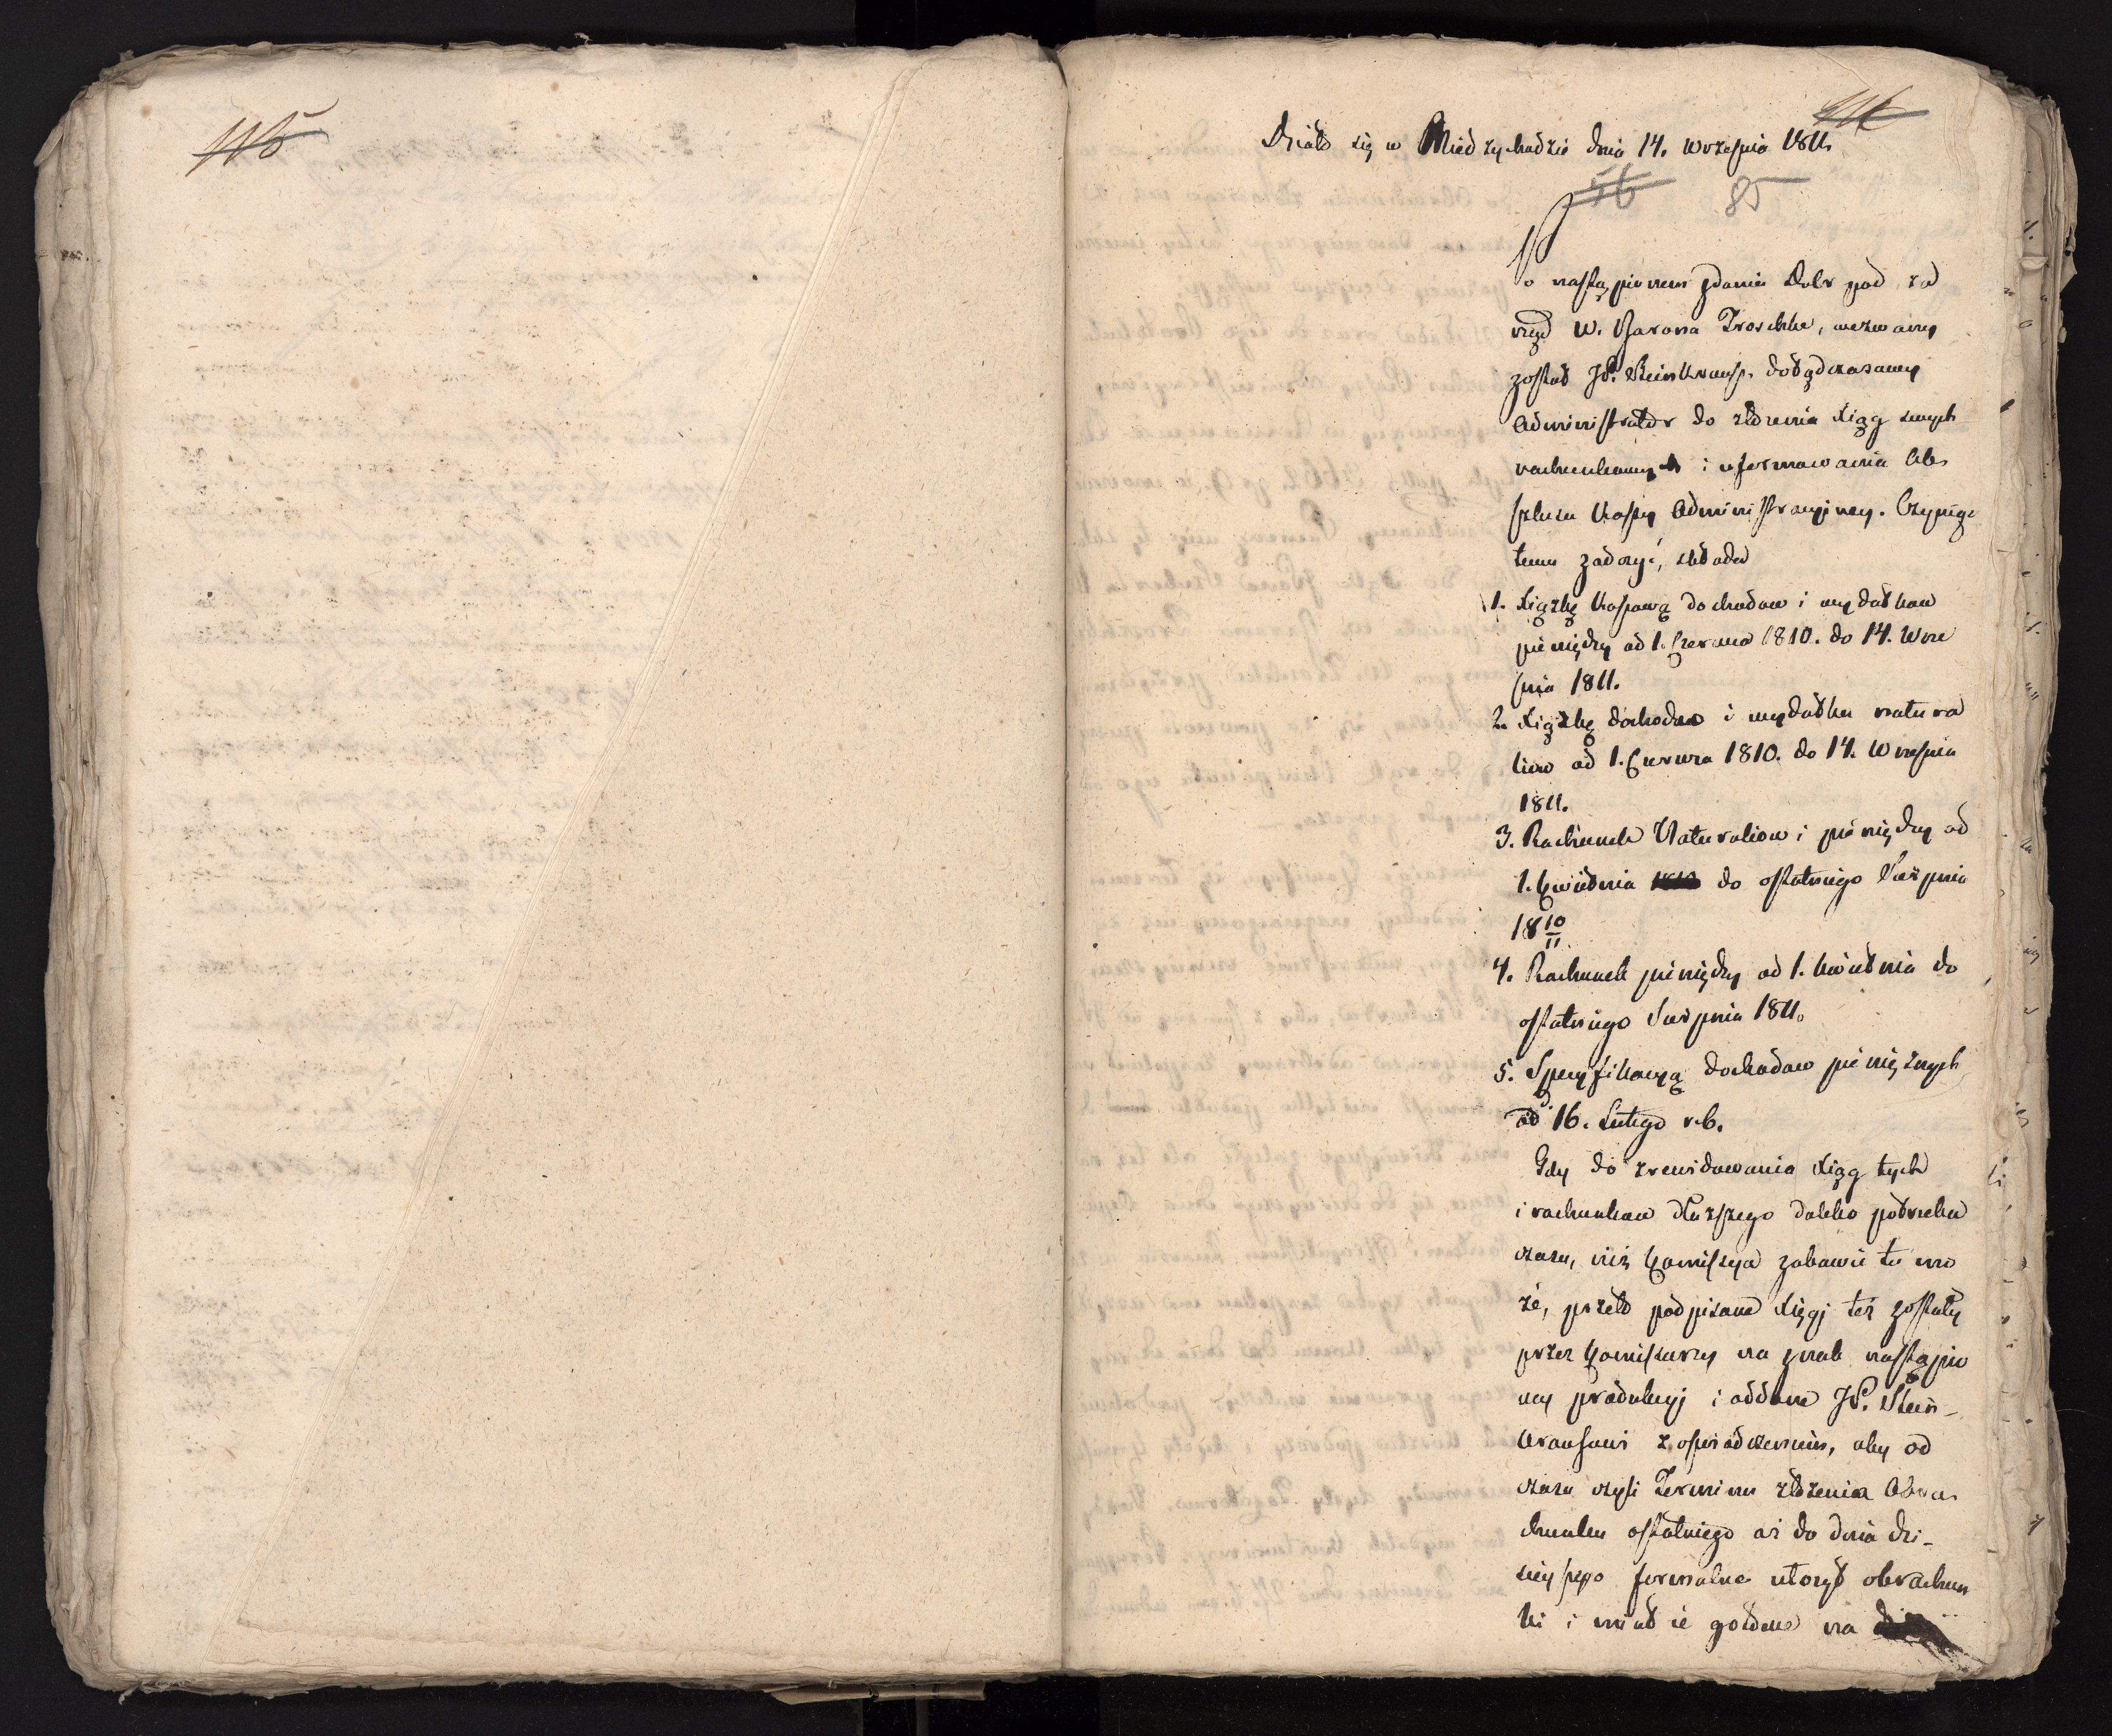 115
116
Działo się w Miedzychodzie dnia 14. Wrzesnia 1811.
56 85
Po nastąpionem zdaniu Dobr pod za
rząd W. Barona Troschke, wezwany
został JP. Steinkrauss dotądczasowy
Administrator do złożenia Xiąg swych
rachunkowych i uformowania Ab
szlusu Kassy Administracyjney. Czyniąc
temu zadosyć, składa
1. Xiążkę Kassową dochodow i wydatkow
pieniędzy od 1. Czerwca 1810. do 14. Wrze
snia 1811.
2. Xiążkę dochodu i wydatku natura
liow od 1. Czerwca 1810. do 14. Wrzesnia
1811.
3. Rachunek Naturaliow i pieniędzy od
1. Kwietnia do ostatniego Sierpnia
18 10/11
4. Rachunek pieniędzy od 1. Kwietnia do
ostatniego Sierpnia 1811.
5. Specyfikacyą dochodow pieniężnych
od 16. Lutego r. b.
Gdy do zrewidowania Xiąg tych
i rachunkow dłuższego daleko potrzeba
czasu, niż Kommissya zabawić tu mo
że, przeto podpisane Xięgi też zostały
przez Kommissarzy na znak nastąpio
ney produkcyi i oddane JP. Stein-
krausowi z oswiadczeniem, aby od
czasu czyli Terminu złożenia Obra
chunku ostatniego aż do dnia dzi-
sieyszego formalne ułożył obrachun
ki i miał ie gotowe na